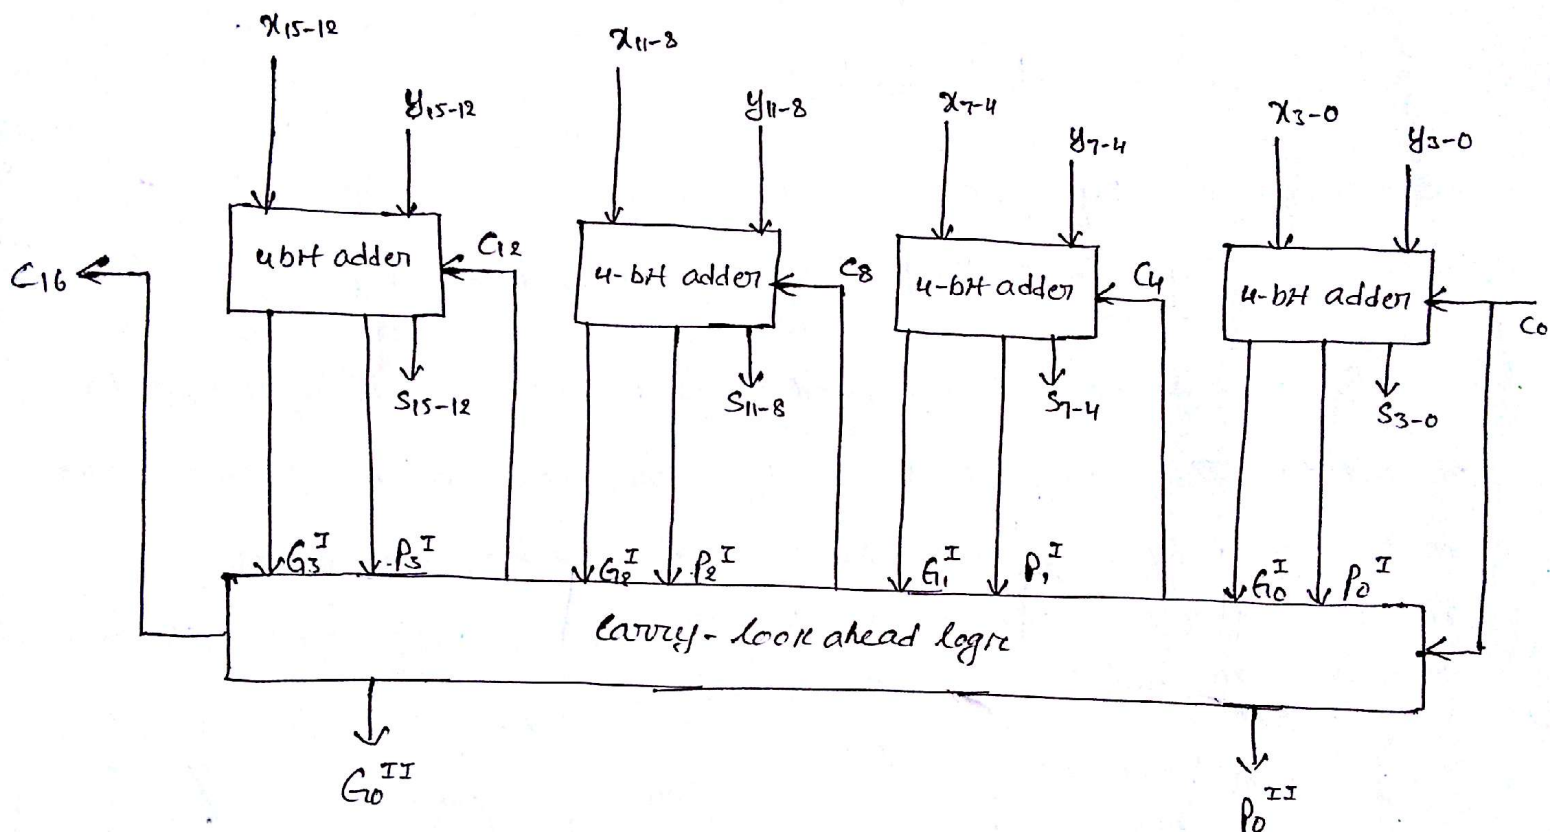 x15-12
x11-8
y15-12
y11-8
x7-4
x3-0
y7-4
y3-0
4bit adder
C12
4-bit adder
C8
4-bit adder
C4
4-bit adder
C0
C16
S15-12
S11-8
S7-4
S3-0
G3^I
P3^I
G2^I
P2^I
G1^I
P1^I
G0^I
P0^I
Carry-look ahead logic
G0^II
P0^II